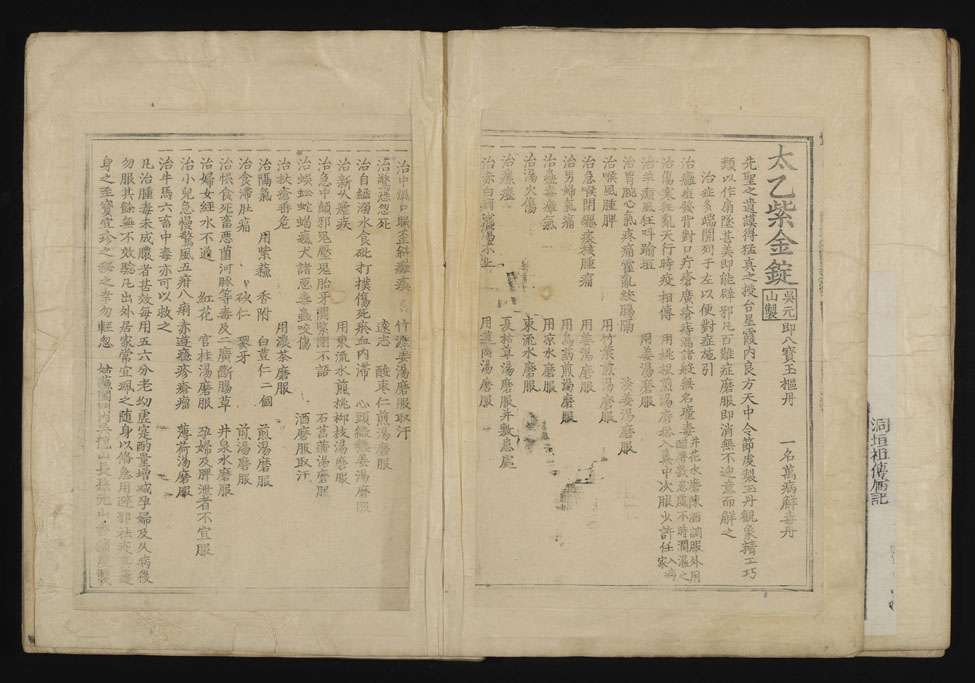 太乙紫金錠 吳元山製 即八寶玉樞丹 一名萬病解毒丹
先聖之遺謨得猛真之授台星霞內良方天中令節虔製玉丹觀象精工巧
類以作扇墜甚美即能辟邪凡百雜症磨服即消無不迎意而解之
治症多端開列于左以便對症施引
一治癰疽發背對口疔瘡廣瘡痔漏諸般無名瘡毒 井花水磨陳酒調服外用醋磨敷患處不時潤濕之
一治傷寒狂亂天行時疫相傳 用桃根煎湯磨 鼻中次服少許任入病家
一治羊癲風狂叫踰垣 用姜湯磨服
一治胃腕心氣疼痛霍亂絞腸痧 淡姜湯磨服
一治喉風腫脾 用竹葉煎湯磨服
一治急喉閉纏痰核腫瘤 用姜湯磨服
一治男婦氣痛 用烏藥煎湯磨服
一治蟲毒瘴氣 用凉水磨服
一治湯火傷 東流水磨服
一治瘰癧 夏枯草湯磨服并敷患處
一治赤白痢泄瀉不止 用薑湯磨服
一治中風口眼歪斜癱瘓 竹瀝姜湯磨服取汗
一治驚恐忽死 遠志 酸棗仁煎湯磨服
一治自縊溺水食砒打撲傷死瘀血內滯 心頭微 姜湯磨服
一治新久瘧疾 用東流水煎桃柳枝湯磨服
一治急中顛邪鬼壓鬼胎牙關緊閉不語 石菖蒲湯磨服
一治蜈蚣蛇蝎瘋犬諸惡毒蟲咬傷 酒磨服取汗
一治杖瘡垂危 用濃茶磨服
一治隔氣 用紫蘇 香附 白荳仁二個 煎湯磨服
一治食滯肚痛 砂仁 麥牙 煎湯磨服
一治悞食死畜惡菌河豚等毒及二廣斷腸草 井泉水磨服
一治婦女經水不通 紅花 官桂湯磨服 孕婦及脾泄者不宜服
一治小兒急慢驚風五疳八痢赤遊癮疹瘡瘤 薄荷湯磨服
一治牛馬六畜中毒亦可以救之
凡治腫毒未成膿者甚效每用五六分老幼虛寔酌量增減孕婦及久病後
勿服其餘無不效驗凡出外居家常宜珮之隨身以備急用避邪祛疫
身之至寶宜珍之 之幸勿輕忽 姑蘇閶門內 山長 元山
洞垣祖傳